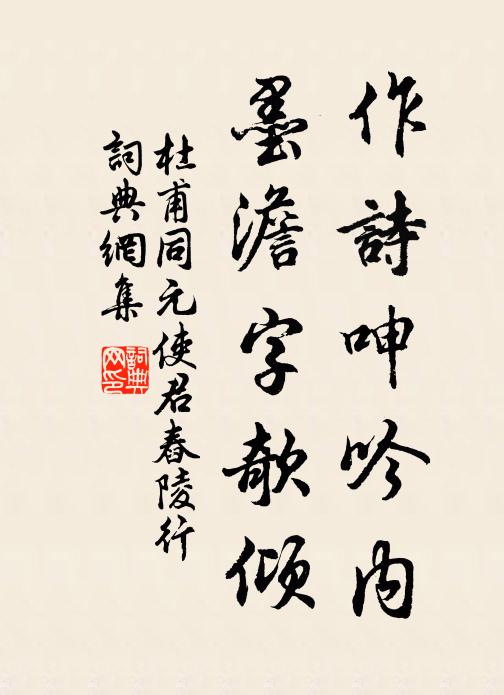 作詩呻吟內
墨澹字欹傾
杜甫同元使君舂陵行
詞典網集
詞典网印